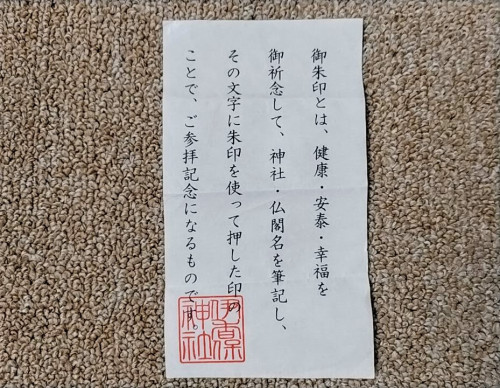 御朱印とは、健康・安泰・幸福を
御祈念して、神社・仏閣名を筆記し、
その文字に朱印を使って押した印の
ことで、ご参拝記念になるものです。
伊奈
神社